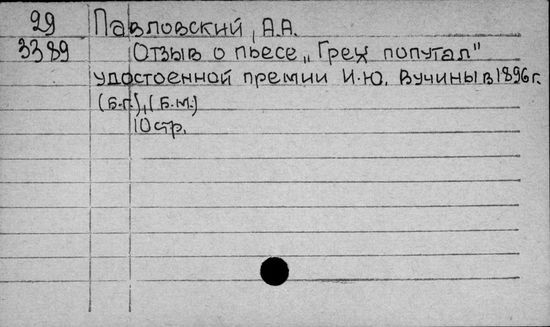 29 Павловский, А.А.
3389 Отзыв о пьесе „Грех попутал"
удостоенной премии И.Ю. Вучины в 1896 г.
(б.г.), (б.м.)
10 стр.